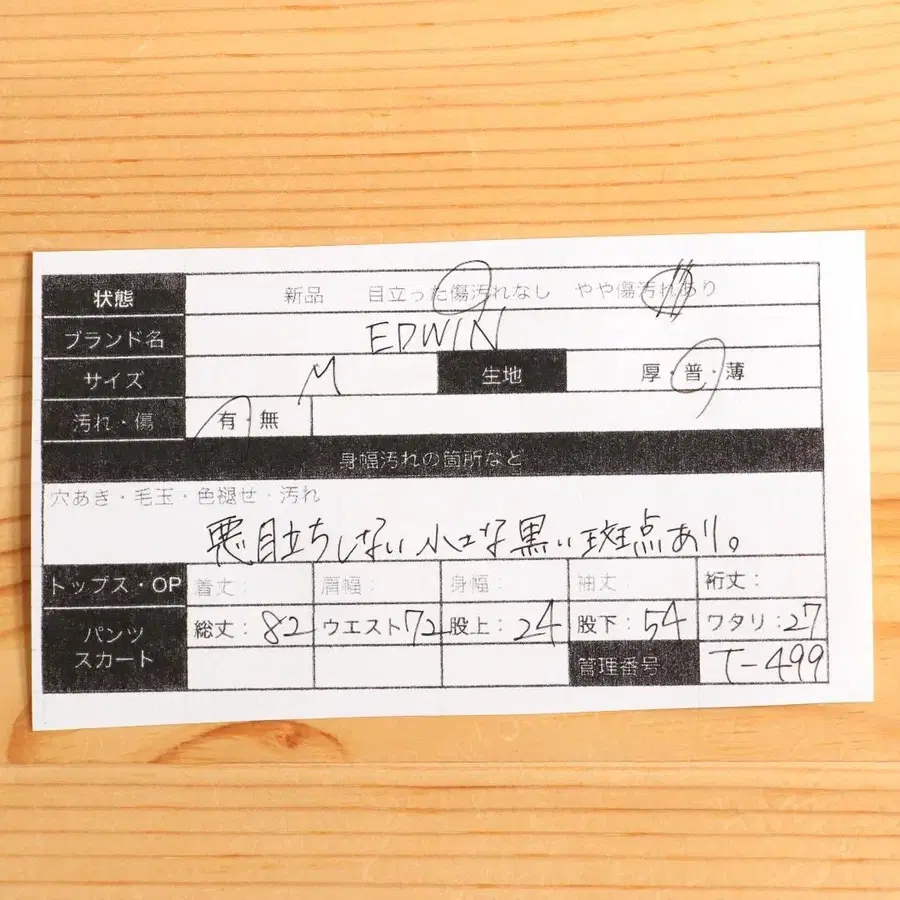 状態 新品 目立った傷汚れなし やや傷汚れあり
ブランド名 EDWIN
サイズ M 生地 厚・普・薄
汚れ・傷 有・無
身幅汚れの箇所など
穴あき・毛玉・色褪せ・汚れ
悪目立ちしない小さな黒い斑点あり。
トップス・OP 着丈: 肩幅: 身幅: 袖丈: 裄丈:
パンツ スカート 総丈: 82 ウエスト72 股上: 24 股下: 54 ワタリ:27
管理番号 T-499